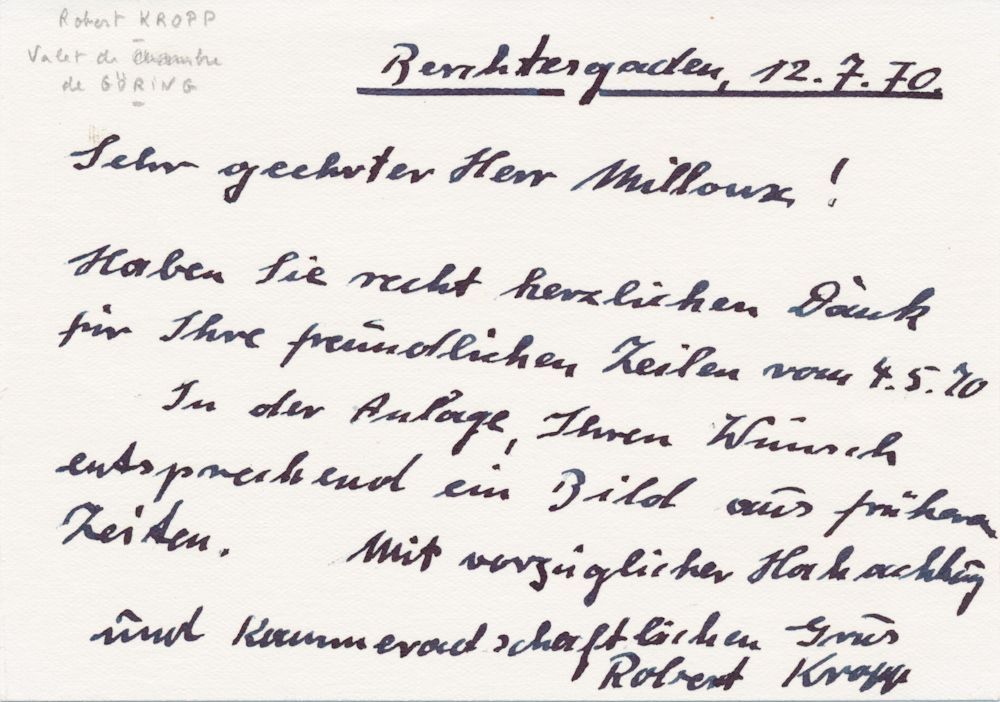 Robert KROPP
Valet de chambre
de GÖRING
Berchtesgaden, 12.7.70.
Sehr geehrter Herr Milloux !
Haben Sie recht herzlichen Dank
für Ihre freundlichen Zeilen vom 4.5.70
In der Anlage, Ihren Wunsch
entsprechend ein Bild aus früheren
Zeiten. Mit vorzüglicher Hochachtung
und Kammeradschaftlichen Grus
Robert Kropp